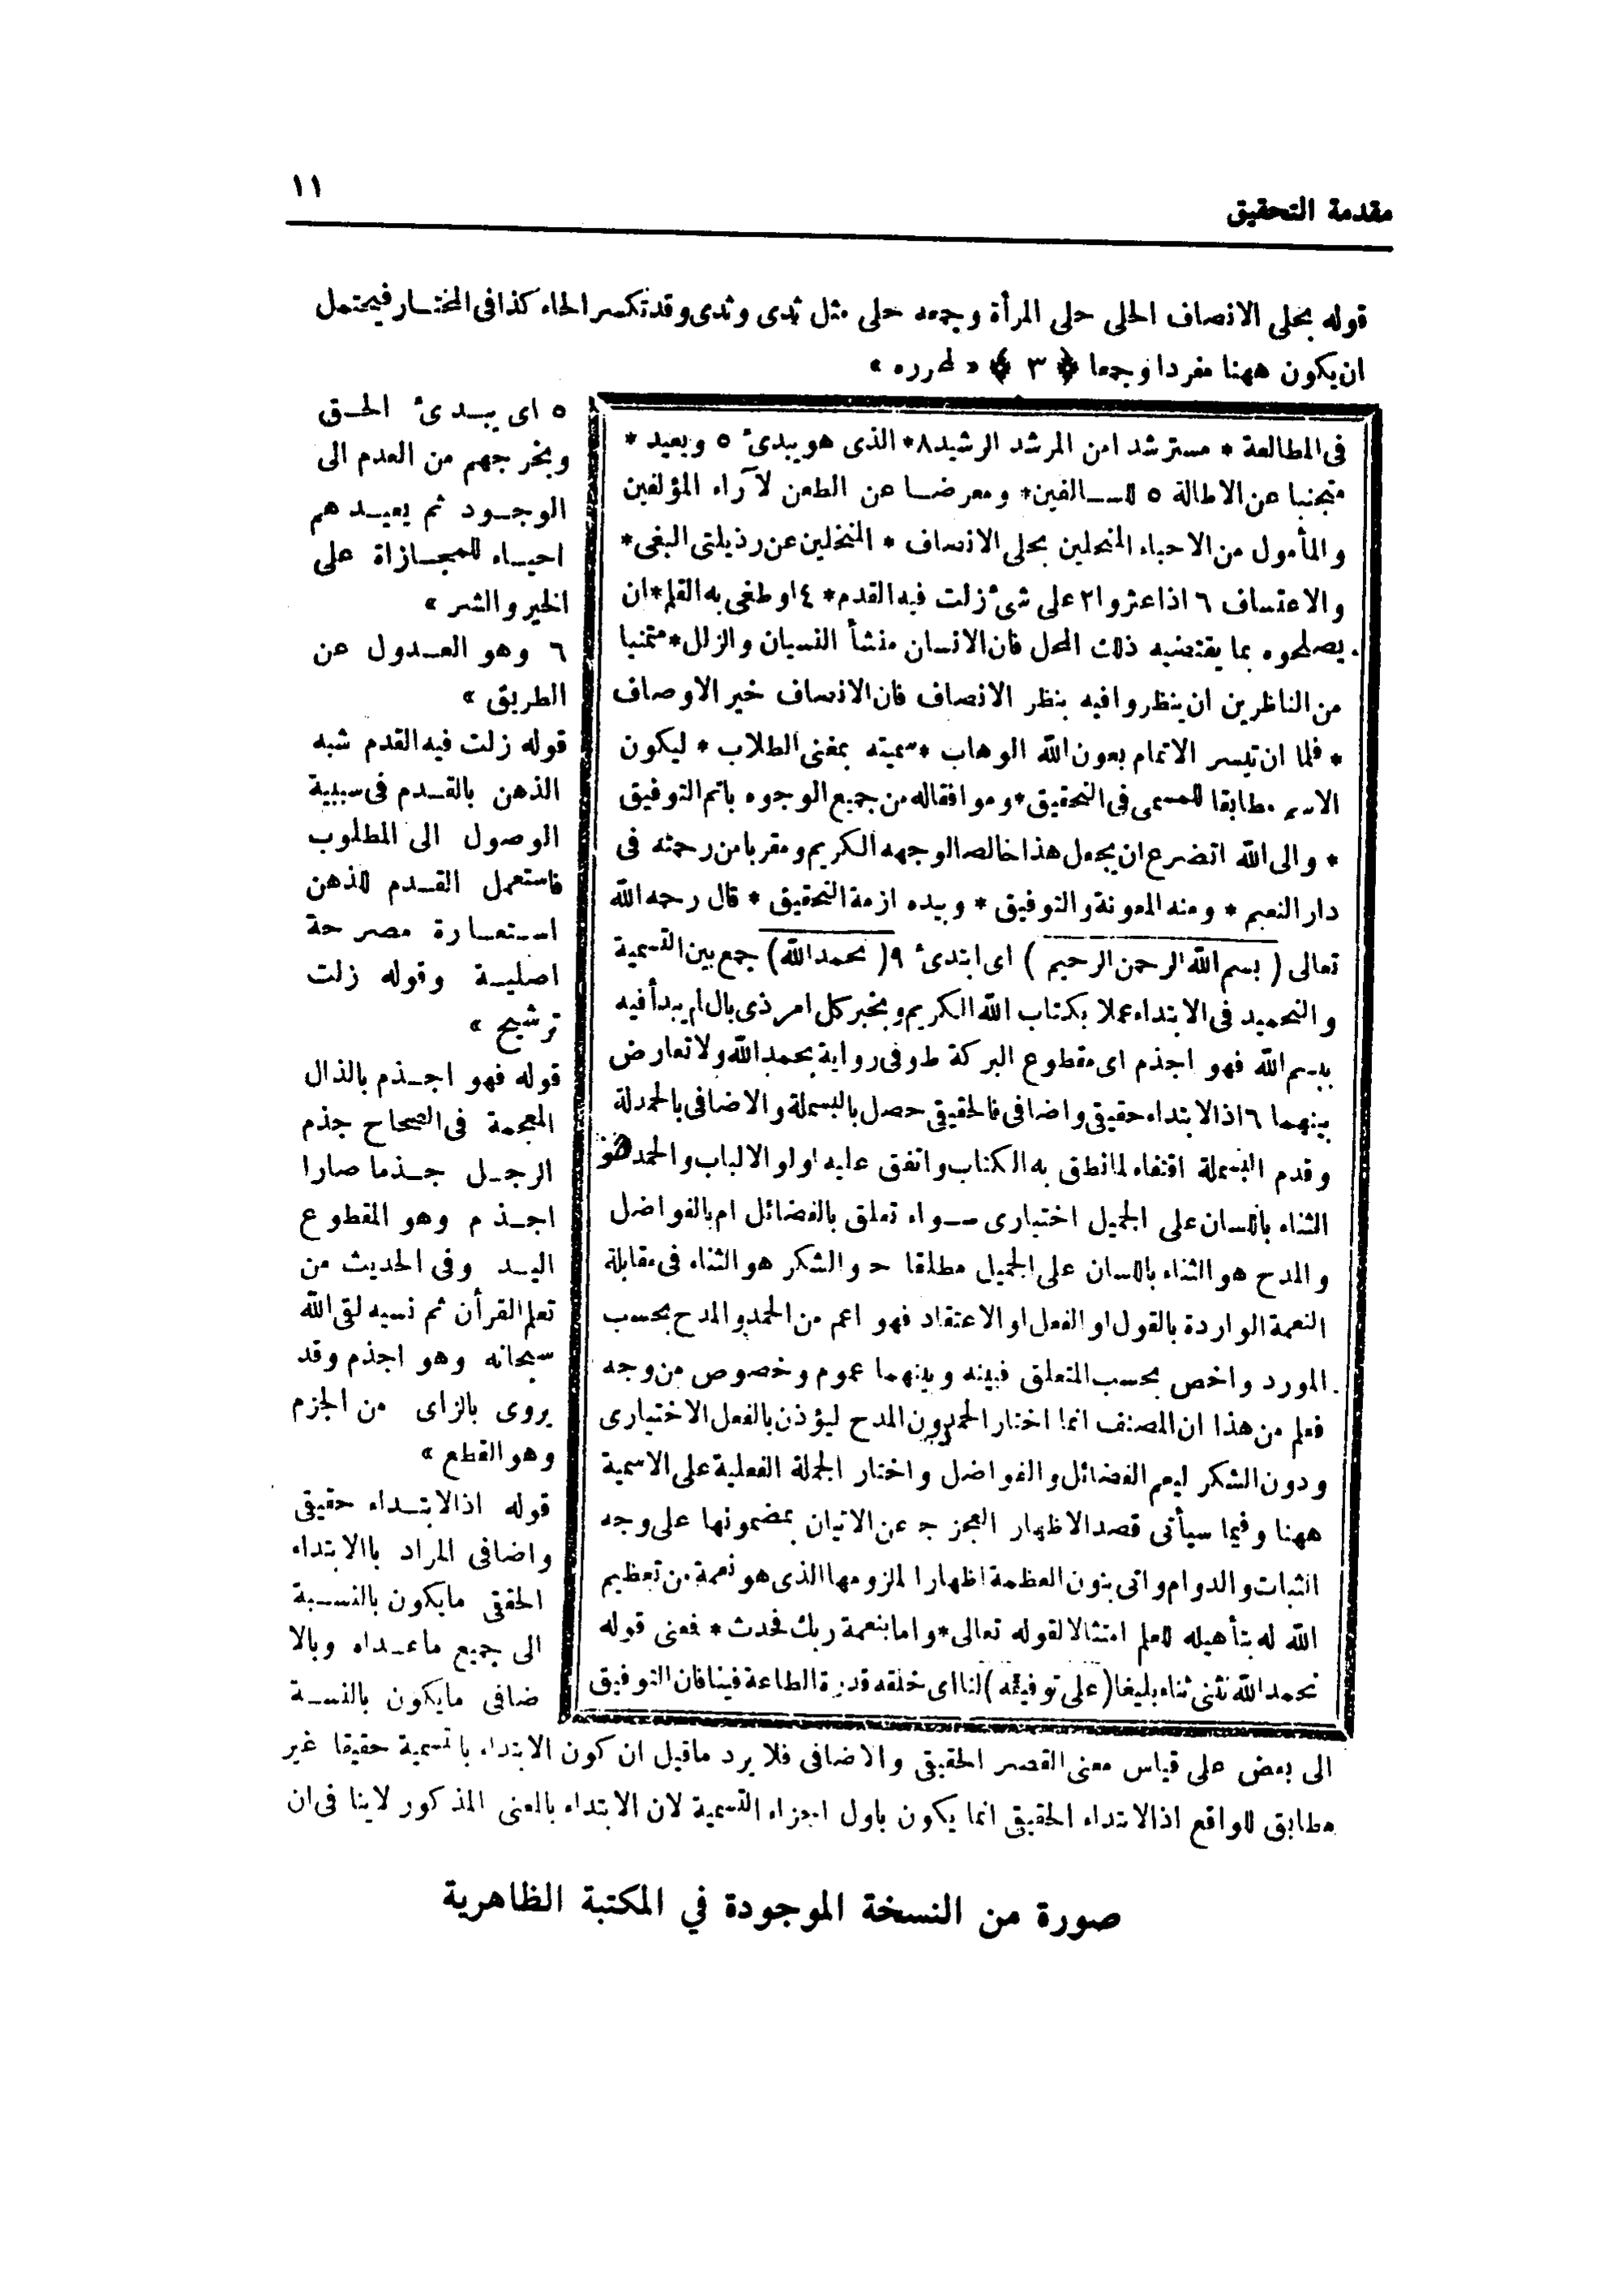 ١١
مقدمة التحقيق
قوله بحلى الانصاف الحلى حلى المرأة وجمعه حلى مثل ثدى وثدى وقد تكسر الحاء كذا فى المختار فيحتمل
ان يكون ههنا مفردا وجمعا ﴿ ٣ ﴾ « لمحرره »
فى المطالعة * مسترشدا من المرشد الرشيد ٨* الذى هو يبدئ ٥ ويعيد *
متجنبا عن الاطالة ٥ للسالفين* ومعرضا عن الطعن لآراء المؤلفين
والمأمول من الاحباء المتحلين بحلى الانصاف * المتخلين عن رذيلتى البغى*
والاعتساف ٦ اذا عثروا ٢ على شئ زلت فيه القدم* ٤ او طغى به القلم* ان
يصلحوه بما يقتضيه ذلك المحل فان الانسان منشأ النسيان والزلل* متمنيا
من الناظرين ان ينظروا فيه بنظر الانصاف فان الانصاف خير الاوصاف
* فلما ان تيسر الاتمام بعون الله الوهاب * سميته بمغنى الطلاب * ليكون
الاسم مطابقا للمسمى فى التحقيق * وموافقاله من جميع الوجوه باتم التوفيق
* والى الله اتضرع ان يجعل هذا خالصا لوجهه الكريم ومقربا من رحمته فى
دار النعيم * ومنه المعونة والتوفيق * وبيده ازمة التحقيق * قال رحمه الله
تعالى ( بسم الله الرحمن الرحيم ) اى ابتدئ ٩ ( نحمد الله ) جمع بين التسمية
والتحميد فى الابتداء عملا بكتاب الله الكريم وبخبر كل امر ذى بال لم يبدأ فيه
ببسم الله فهو اجذم اى مقطوع البركة ط وفى رواية بحمد الله ولا تعارض
بينهما ٦ اذ الابتداء حقيقى واضافى فالحقيقى حصل بالبسملة والاضافى بالحمدلة
وقدم البسملة اقتفاء لما نطق به الكتاب واتفق عليه اولو الالباب والحمد هو
الثناء باللسان على الجميل اختيارى سواء تعلق بالفضائل ام بالفواضل
والمدح هو الثناء باللسان على الجميل مطلقا ح والشكر هو الثناء فى مقابلة
النعمة الواردة بالقول او الفعل او الاعتقاد فهو اعم من الحمد والمدح بحسب
المورد واخص بحسب المتعلق فبينه وبينهما عموم وخصوص من وجه
فعلم من هذا ان المصنف انما اختار الحمد دون المدح ليؤذن بالفعل الاختيارى
ودون الشكر ليعم الفضائل والفواضل واختار الجملة الفعلية على الاسمية
ههنا وفيما سيأتى قصد الاظهار العجز ج عن الاتيان بمضمونها على وجه
الثبات والدوام واتى بنون العظمة اظهارا لملزومها الذى هو نعمة من تعظيم
الله له بتأهيله للعلم امتثالا لقوله تعالى * واما بنعمة ربك فحدث * فمعنى قوله
نحمد الله نثنى ثناء بليغا ( على توفيقه ) لنا اى خلقه قدرة الطاعة فينا فان التوفيق
٥ اى يبدئ الحق
ويخرجهم من العدم الى
الوجود ثم يعيدهم
احياء للمجازاة على
الخير والشر »
٦ وهو العدول عن
الطريق »
قوله زلت فيه القدم شبه
الذهن بالقدم فى سببية
الوصول الى المطلوب
فاستعمل القدم للذهن
استعارة مصرحة
اصلية وقوله زلت
ترشيح »
قوله فهو اجذم بالذال
المعجمة فى الصحاح جذم
الرجل جذما صارا
اجذم وهو المقطوع
اليد وفى الحديث من
تعلم القرأن ثم نسيه لقى الله
سبحانه وهو اجذم وقد
يروى بالزاى من الجزم
وهو القطع »
قوله اذ الابتداء حقيقى
واضافى المراد باالابتداء
الحقيقى مايكون بالنسبة
الى جميع ماعداه وبالا
ضافى مايكون بالنسبة
الى بعض على قياس معنى القصر الحقيقى والاضافى فلا يرد ماقيل ان كون الابتداء بالتسمية حقيقا غير
مطابق للواقع اذ الابتداء الحقيقى انما يكون باول اجزاء التسمية لان الابتداء بالمعنى المذكور لاينا فى ان
صورة من النسخة الموجودة في المكتبة الظاهرية